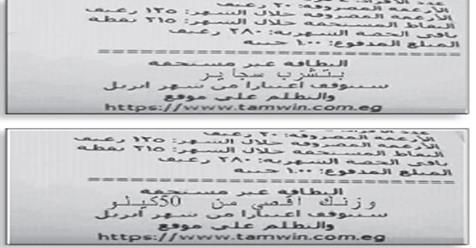 الأرغفة المصروفة: ٢٠ رغيف
الأرغفة المصروفة خلال الشهر: ١٢٥ رغيف
النقاط المستحقة خلال الشهر: ٢١٥ نقطة
باقى الحصة الشهرية: ٢٨٠ رغيف
المبلغ المدفوع: ١.٠٠ جنيه
البطاقة غير مستحقة
بتشرب سجاير
ستتوقف اعتبارا من شهر ابريل
والتظلم على موقع
https://www.tamwin.com.eg
الأرغفة المصروفة: ٢٠ رغيف
الأرغفة المصروفة خلال الشهر: ١٢٥ رغيف
النقاط المستحقة خلال الشهر: ٢١٥ نقطة
باقى الحصة الشهرية: ٢٨٠ رغيف
المبلغ المدفوع: ١.٠٠ جنيه
البطاقة غير مستحقة
وزنك اقصي من 50كيلو
ستتوقف اعتبارا من شهر ابريل
والتظلم على موقع
https://www.tamwin.com.eg